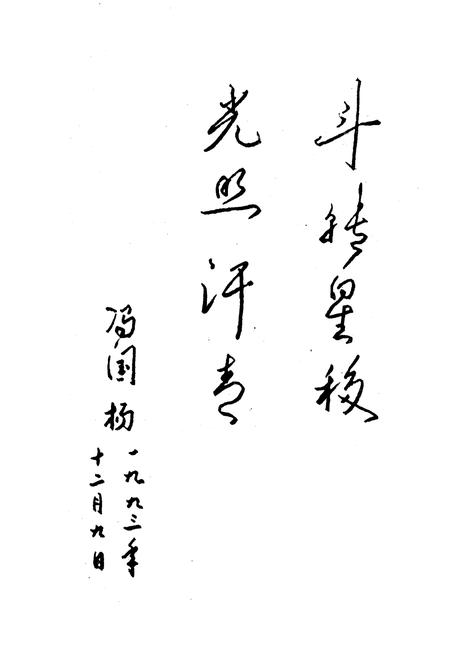 斗转星移
光照汗青
冯国杨
一九九三年
十二月九日